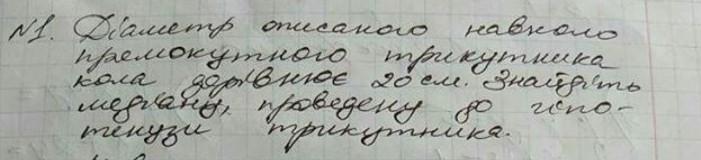 N1. Діаметр описаного навколо
прямокутного трикутника
кола дорівнює 20 см. Знайдіть
медіану, проведену до гіпо-
тенузи трикутника.